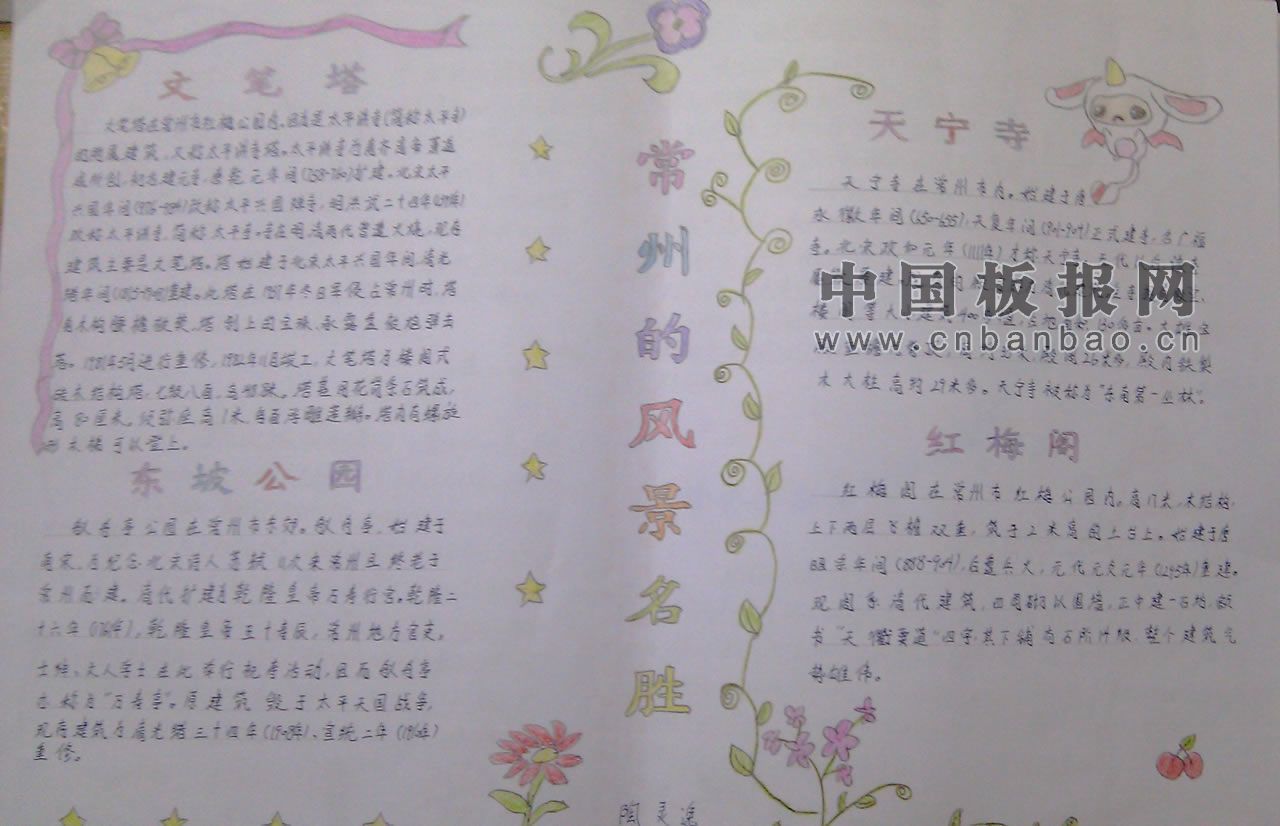 文笔塔
文笔塔在常州市红梅公园内,因是太平讲寺(简称太平寺)
的附属建筑,又称太平讲寺塔。太平讲寺为南齐高帝萧道
成所创,初名建元寺,唐乾元年间(758-760)扩建。北宋太平
兴国年间(976-984)改称太平兴国禅寺,明洪武二十四年
改称太平讲寺,简称太平寺。寺在明清两代曾遭火烧,现存
建筑主要是文笔塔。塔始建于北宋太平兴国年间,清光
绪年间重建。此塔在1937年冬日军侵占常州时,塔
刹上的宝珠、承露盘被炮弹击
落。1981年5月进行重修,1982年11月竣工,文笔塔为楼阁式
砖木结构塔,七级八面,塔基用花岗岩石筑成,
高80厘米,须弥座高1米,每面浮雕莲瓣。塔内有螺旋
木梯可以登上。
东坡公园
舣舟亭公园在常州市东郊。舣舟亭,始建于
南宋,为纪念北宋诗人苏轼11次来常州且终老于
常州而建。清代扩建为乾隆皇帝万寿行宫。乾隆二
十六年(1761年),乾隆皇帝五十寿辰,常州地方官吏、
士绅、文人学士在此举行祝寿活动,因而舣舟亭
亦称为"万寿亭"。原建筑毁于太平天国战争,
现存建筑为光绪三十四年(1908年)、宣统二年(1910年)
重修。
常州的风景名胜
天宁寺
天宁寺在常州市内。始建于唐
永徽年间(650-655),天复年间(901-904)正式建寺,名广福
寺。北宋政和元年(1111年)才称天宁寺,元代
木大柱高约29米多。天宁寺被称为"东南第一丛林"。
红梅阁
红梅阁在常州市红梅公园内。高17米,木结构,
上下两层飞檐双重,筑于2米高的土台上。始建于唐
昭宗年间(888-904),后遭兵火,元代元贞元年(1295年)重建。
现阁系清代建筑,四周砌以围墙,正中建一石坊,额
书"天衢要道"四字,其下铺有石阶,整个建筑气
势雄伟。
中国板报网
www.cnbanbao.cn